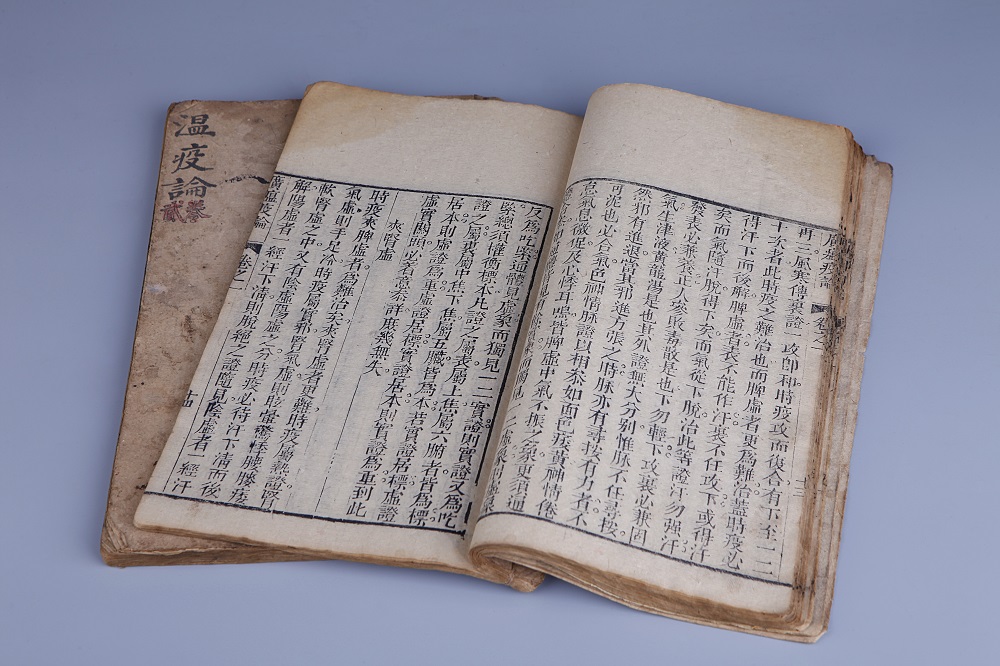 溫疫論
廣瘟疫論 卷之二 十三
冉三風寒傳裏證一攻卽和時疫攻而復合有下至一二
十次者此時疫之難治也而脾虛者更為難治蓋時疫必
得汗下而後解脾虛者表不能作汗裏不任攻下或得汗
矣而氣隨汗脫得下矣而氣從下脫治此等證汗勿強汗
發表必兼養正人參敗毒散是也下勿輕下攻裏必兼固
氣生津液黃龍湯是也其外證無大分別惟脉不任尋按
然邪有進退當其邪進方張之時脉亦有尋按有力者不
可泥也必合氣色神情脉證以相參如面色痿黃神情倦
怠氣息微促及心悸耳鳴皆脾虛中氣不振之象更須通
而獨見一二虛
反為吃緊通體見虛象而獨見一二實證則實證又為吃
緊總須權衡標本凡證之屬表屬上焦屬六腑者皆為標
證之屬裏屬中焦下焦屬五臟皆為本若實證居標虛證
居本則虛證為重虛證居標實證居本則實證為重到此
虛實關頭必着意參詳庶幾無失
夾腎虛
時疫夾脾虛者為難治矣夾腎虛者更難時疫屬熱證腎
氣虛則手足冷時疫屬實邪腎氣虛則眩暈驚悸腰膝痿
軟腎虛之中又有陰虛陽虛之分時疫必待汗下清而後
解陽虛者一經汗下清則脫絕之證隨見陰虛者一經汗
廣瘟疫論 卷之二 十四